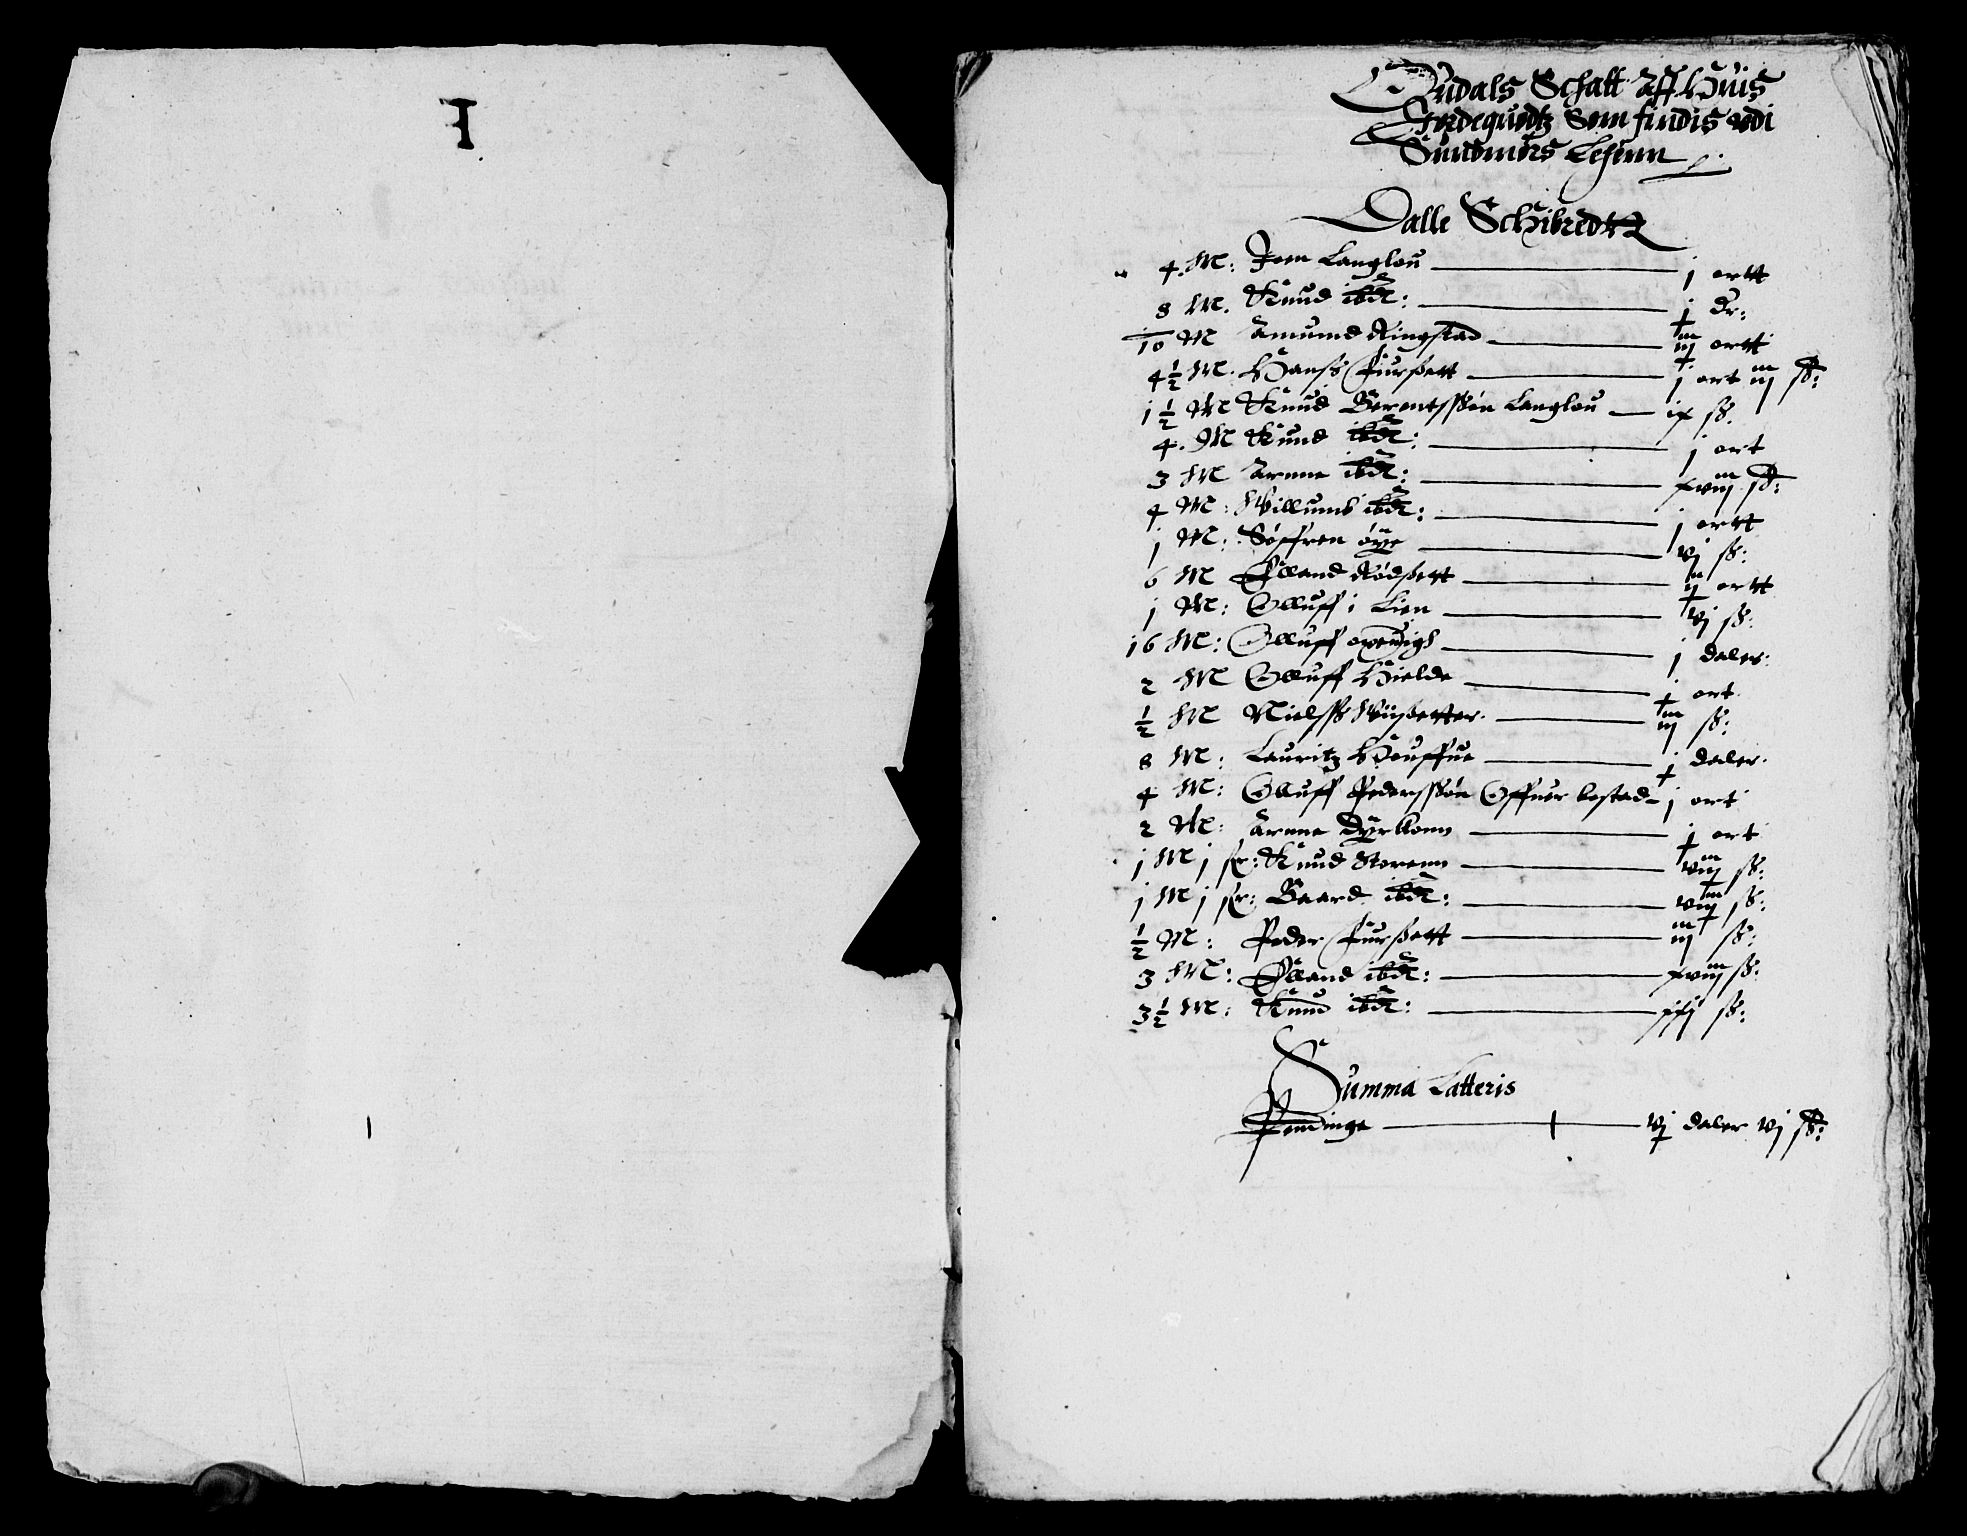 F
Oudals Schatt Aff Huis
Jordeguodtz Som findis udi
Sundmørs Lehenn
Dalle Schibredt
4. M: Joen Langlou j ortt
8 M. Knud ibdt: j dr:
10 M Amund Ringstad iij ortt
4½ M. Hanss Furssett j ort iij ß:
1½ M Knud Berentssøn Langlou ix ß.
4. M Knud ibdt: j ort
3 M Arnne ibdt: xviij ß:
4 M: Willumb ibdt: j ortt
1 M: Søffren øye vj ß:
6 M Elland Rødssett ij ortt
1 M: Olluff i Lien vj ß:
16 M: Olluff j daler:
2 M Olluff Hielde j ort
½ M Nielss iij ß:
8 M: Lauritz Houffue j daler.
4 M: Olluff Pederssøn Offuer bestad j ort
2 M: Arnne Dyrkorn j ort
1 M j Knud Storenn viij ß:
1 M j Baard ibdt: viij ß:
½ M: Peder Furssett iij ß:
3 M: Elland ibdt: xviij ß:
3½ M: Knud ibdt: xxj ß:
Summa Latteris
Pendinge vj daler vj ß: